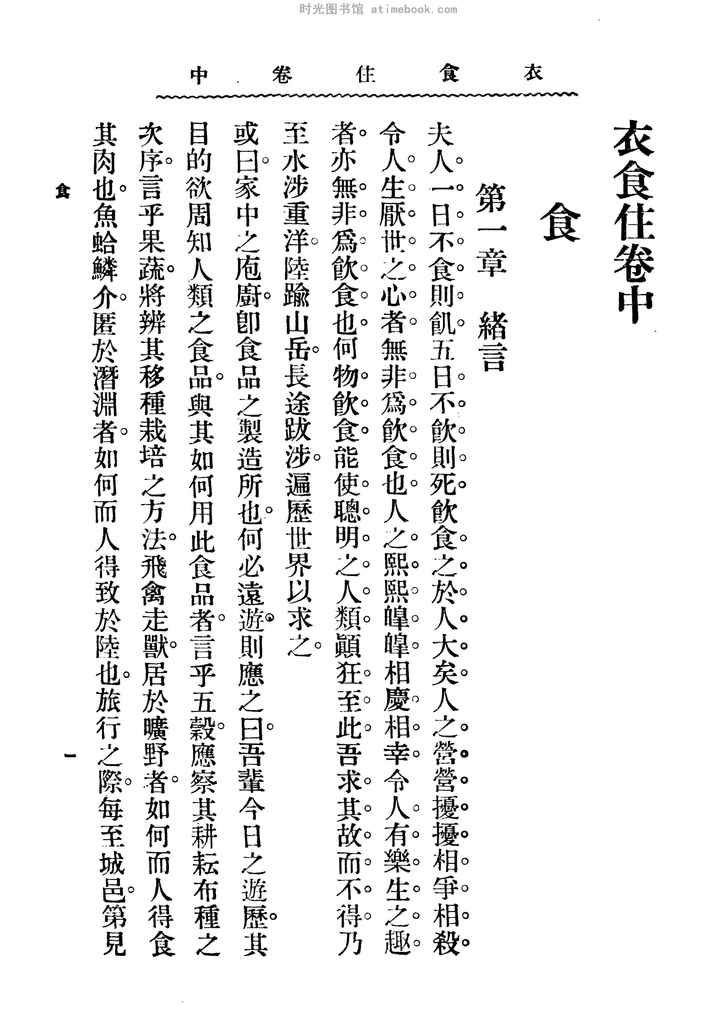 时光图书馆 atimebook.com
衣食住卷中
衣食住卷中
食
第一章 緒言
夫人一日不食則飢五日不飲則死飲食之於人大矣人之營營擾擾相爭相殺
令人生厭世之心者無非爲飲食也人之熙熙皥皥相慶相幸令人有樂生之趣
者亦無非爲飲食也何物飲食能使聰明之人類顚狂至此吾求其故而不得乃
至水涉重洋陸踰山岳長途跋涉遍歷世界以求之
或曰家中之庖廚卽食品之製造所也何必遠遊則應之曰吾輩今日之遊歷其
目的欲周知人類之食品與其如何用此食品者言乎五穀應察其耕耘布種之
次序言乎果蔬將辨其移種栽培之方法飛禽走獸居於曠野者如何而人得食
其肉也魚蛤鱗介匿於潛淵者如何而人得致於陸也旅行之際每至城邑第見
食
一